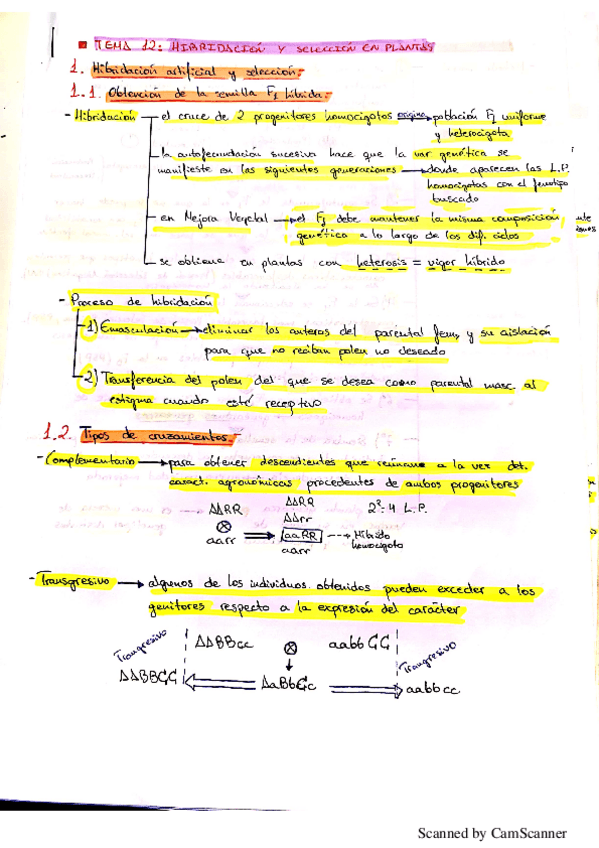 TEMA 12: HIBRIDACIÓN Y SELECCIÓN EN PLANTAS
1. Hibridación artificial y selección.
1.1. Obtención de la semilla F1 híbrida.
- Hibridación — el cruce de 2 progenitores homocigotos origina → población F1 uniforme
y heterocigota
la autofecundación sucesiva hace que la var genética se
manifieste en las siguientes generaciones → donde aparecen las L.P.
homocigotas con el fenotipo
buscado
en Mejora Vegetal → el F1 debe mantener la misma composición
genética a lo largo de los dif. ciclos
se obtiene en plantas con heterosis = vigor híbrido
- Proceso de hibridación
1) Emasculación → eliminar los anteras del parental fem. y su aislación
para que no reciban polen no deseado
2) Transferencia del polen del que se desea como parental masc. al
estigma cuando esté receptivo
1.2. Tipos de cruzamientos.
- Complementario → para obtener descendientes que reúnan a la vez det.
caract. agronómicas procedentes de ambos progenitores
AARR
⊗
aarr
AARR
AArr
aaRR
aarr
2²=4 L.P.
Híbrido
homocigoto
- Transgresivo → algunos de los individuos obtenidos pueden exceder a los
genitores respecto a la expresión del carácter
Transgresivo
AABBcc ⊗ aabbCC
Transgresivo
AABBCC ⇐ AaBbCc ⇒ aabbcc
Scanned by CamScanner